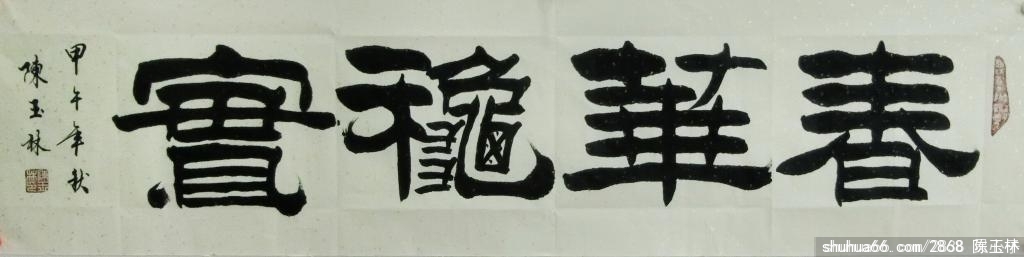 春華穐實
甲午年秋
陳玉林
shuhua66.com/2868 陈玉林